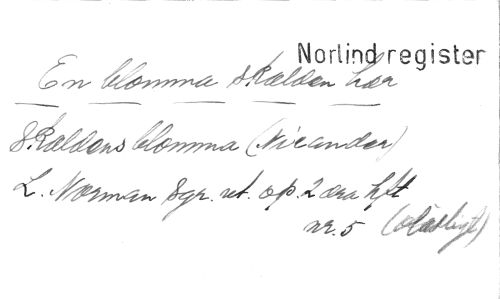 Norlind register
En blomma skalden har
Skaldens blomma (Nicander)
L. Norman Sgr. ut. op. 2 dra hft
nr. 5 (oläsligt)